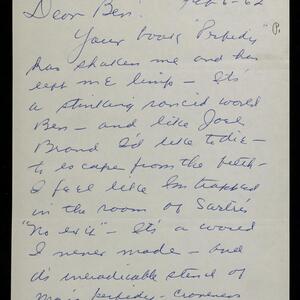 Feb 6 - 62
Dear Ben:
Your book "Perfidy"
has shaken me and has
left me limp - It's
a stinking rancid world
Ben - and like Joel
Brand I'd like to die -
to escape from the filth -
I feel like I'm trapped
in the room of Sartre's
"No exit" - It's a world
I never made - and
it's ineradicable stench of
man's perfidy -